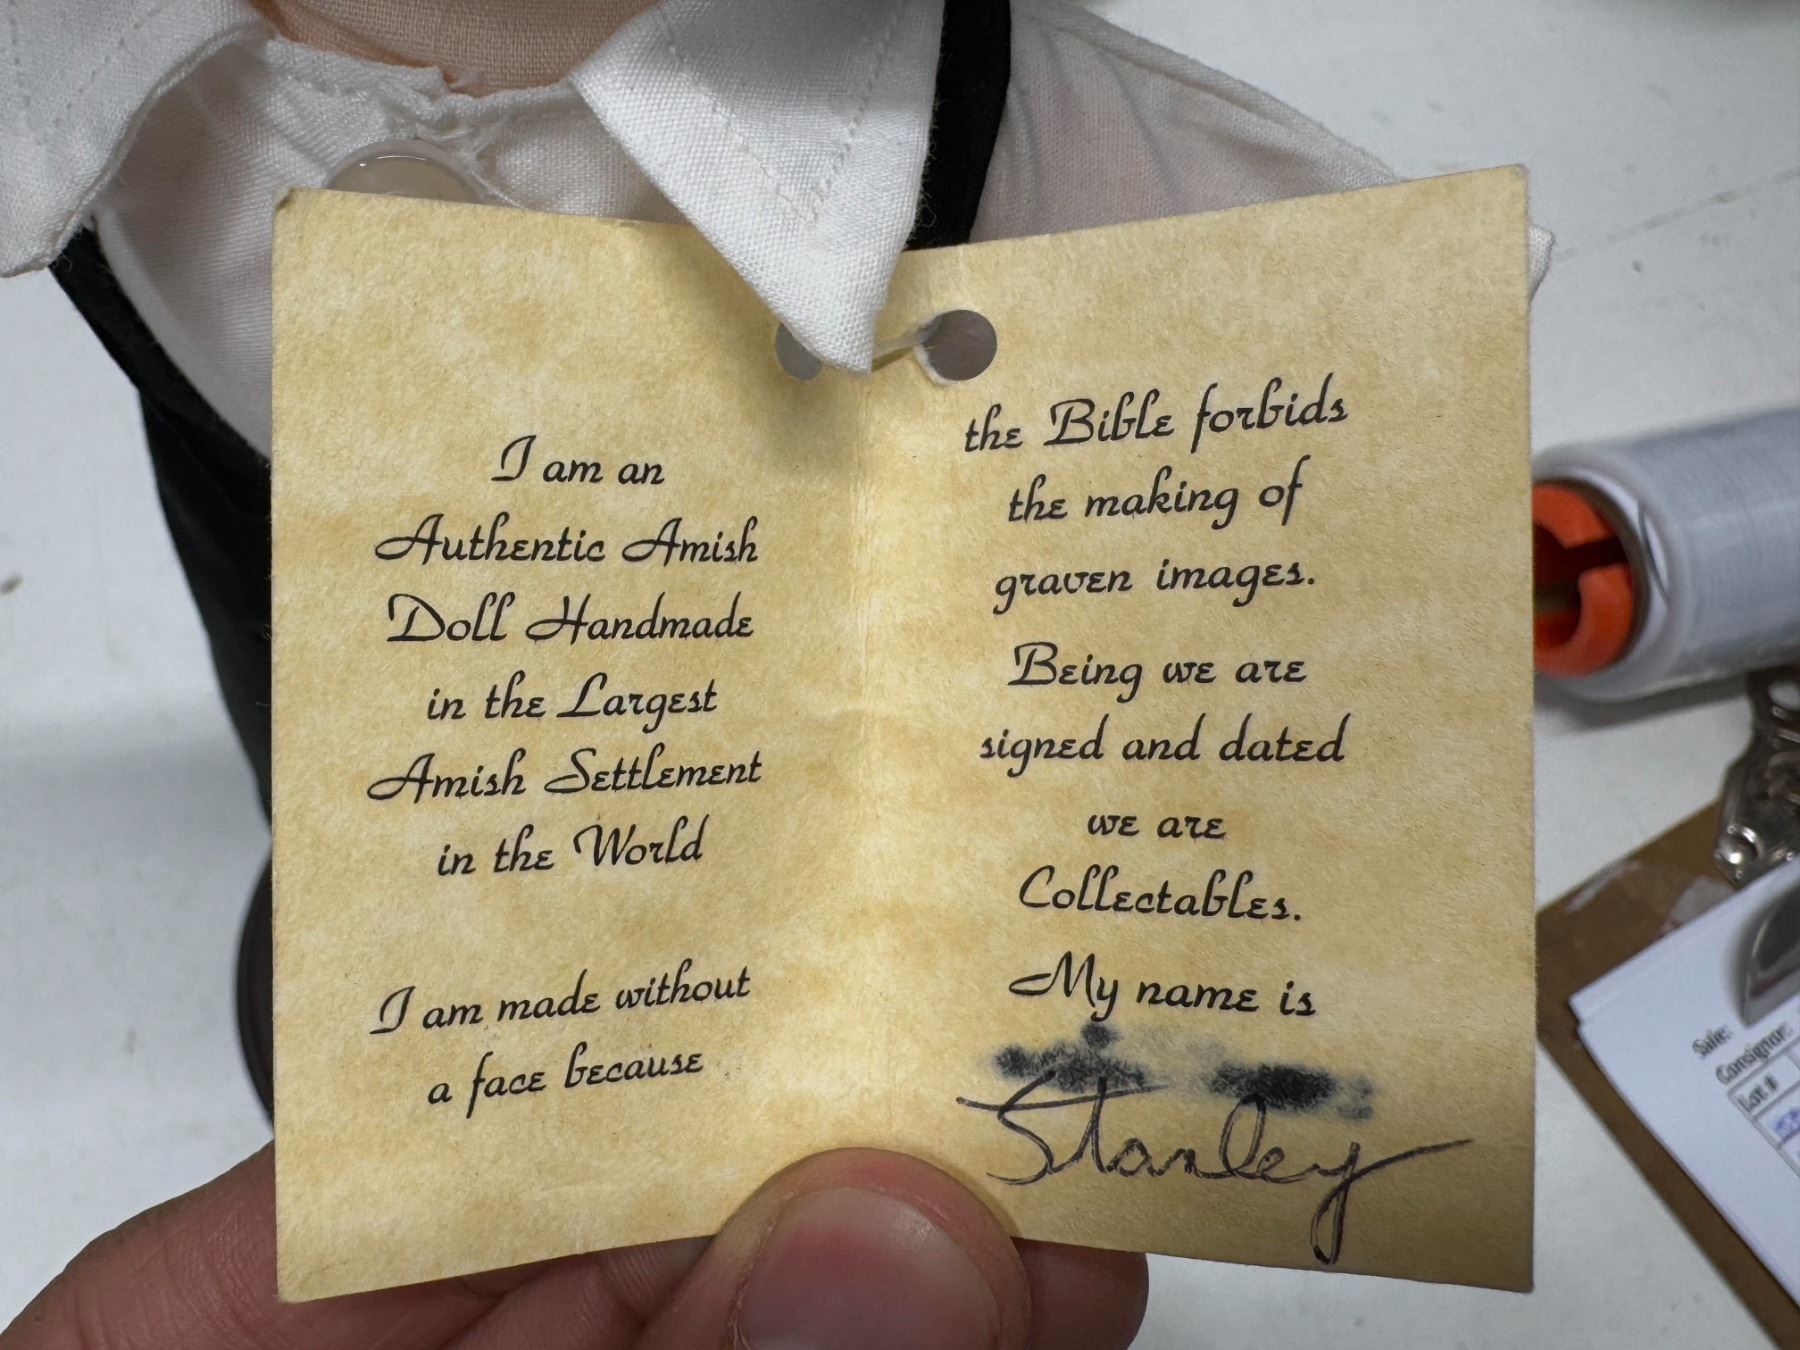 I am an
Authentic Amish
Doll Handmade
in the Largest
Amish Settlement
in the World
I am made without
a face because
the Bible forbids
the making of
graven images.
Being we are
signed and dated
we are
Collectables.
My name is
Stanley
Sale:
Consignor:
Lot #